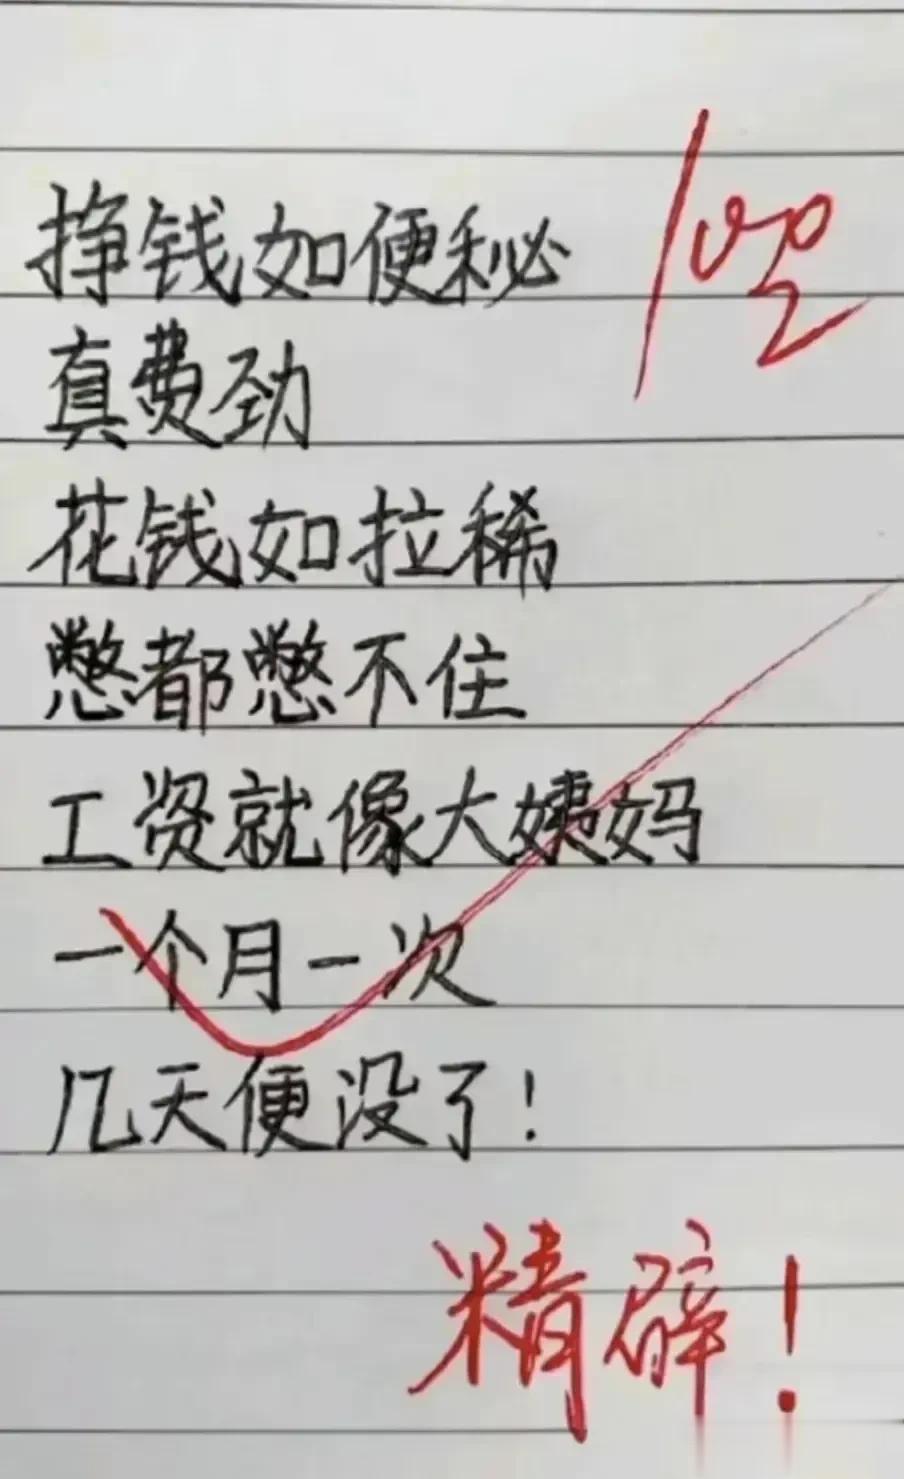 挣钱如便秘
100
真费劲
花钱如拉稀
憋都憋不住
工资就像大姨妈
一个月一次
几天便没了!
精辟!